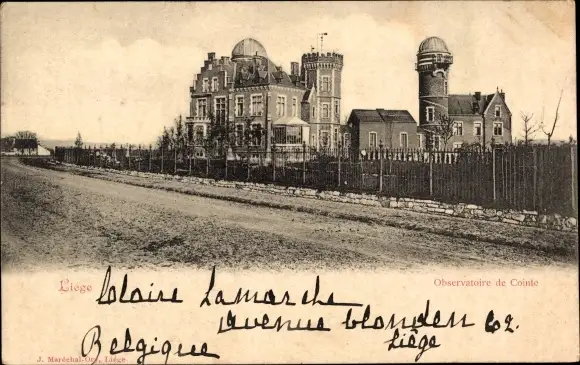 Liége
Observatoire de Cointe
Claire Lamarche
avenue blonden 62.
Liége
Belgique
J. Maréchal-Ory, Liége